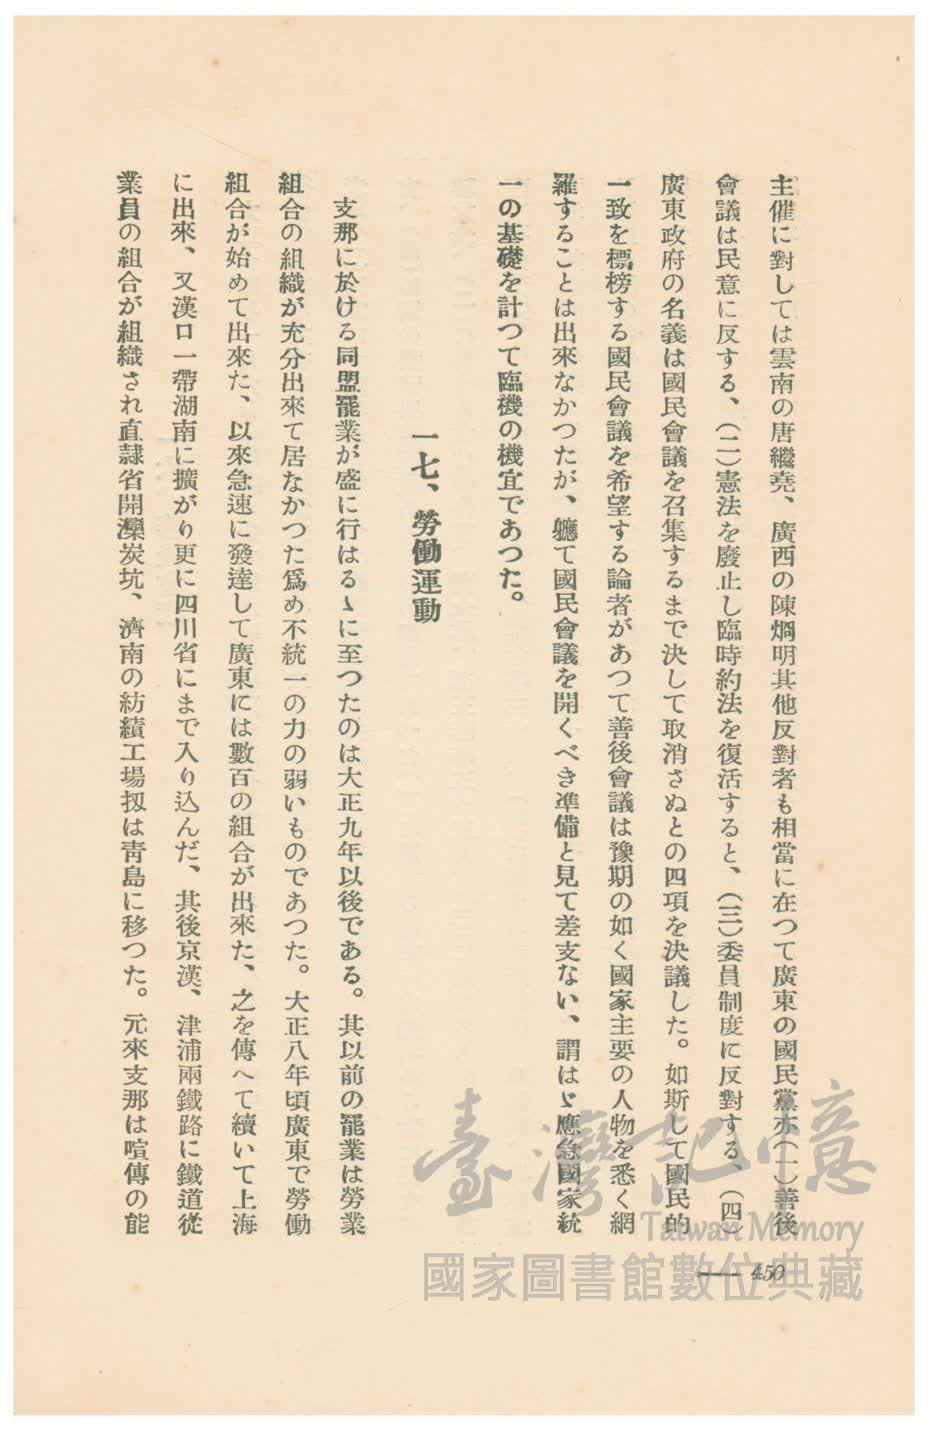 主催に對しては雲南の唐繼堯、廣西の陳烱明其他反對者も相當に在つて廣東の國民黨亦(一)善後
會議は民意に反する、(二)憲法を廢止し臨時約法を復活すると、(三)委員制度に反對する、(四)
廣東政府の名義は國民會議を召集するまで決して取消さぬとの四項を決議した。如斯して國民的
一致を標榜する國民會議を希望する論者があつて善後會議は豫期の如く國家主要の人物を悉く網
羅することは出來なかつたが、軈て國民會議を開くべき準備と見て差支ない、謂はゞ應急國家統
一の基礎を計つて臨機の機宜であつた。
一七、勞働運動
支那に於ける同盟罷業が盛に行はるゝに至つたのは大正九年以後である。其以前の罷業は勞業
組合の組織が充分出來て居なかつた爲め不統一の力の弱いものであつた。大正八年頃廣東で勞働
組合が始めて出來た、以來急速に發達して廣東には數百の組合が出來た、之を傳へて續いて上海
に出來、又漢口一帶湖南に擴がり更に四川省にまで入り込んだ、其後京漢、津浦兩鐵路に鐵道從
業員の組合が組織され直隷省開灤炭坑、濟南の紡績工場扨は靑島に移つた。元來支那は喧傳の能
450
臺灣記憶
Taiwan Memory
國家圖書館數位典藏